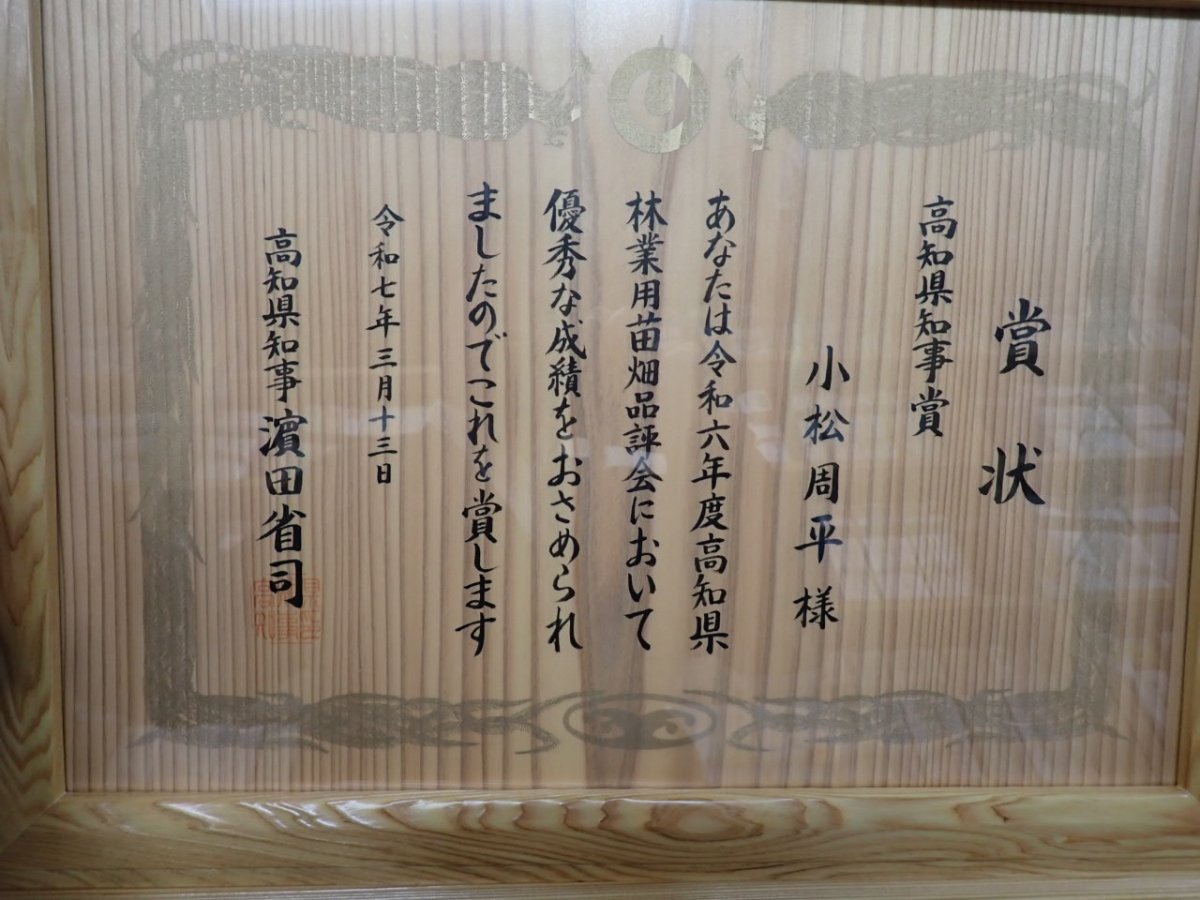 賞状
高知県知事賞
小松周平様
あなたは令和六年度高知県
林業用苗畑品評会において
優秀な成績をおさめられ
ましたのでこれを賞します
令和七年三月十三日
高知県知事 濵田省司